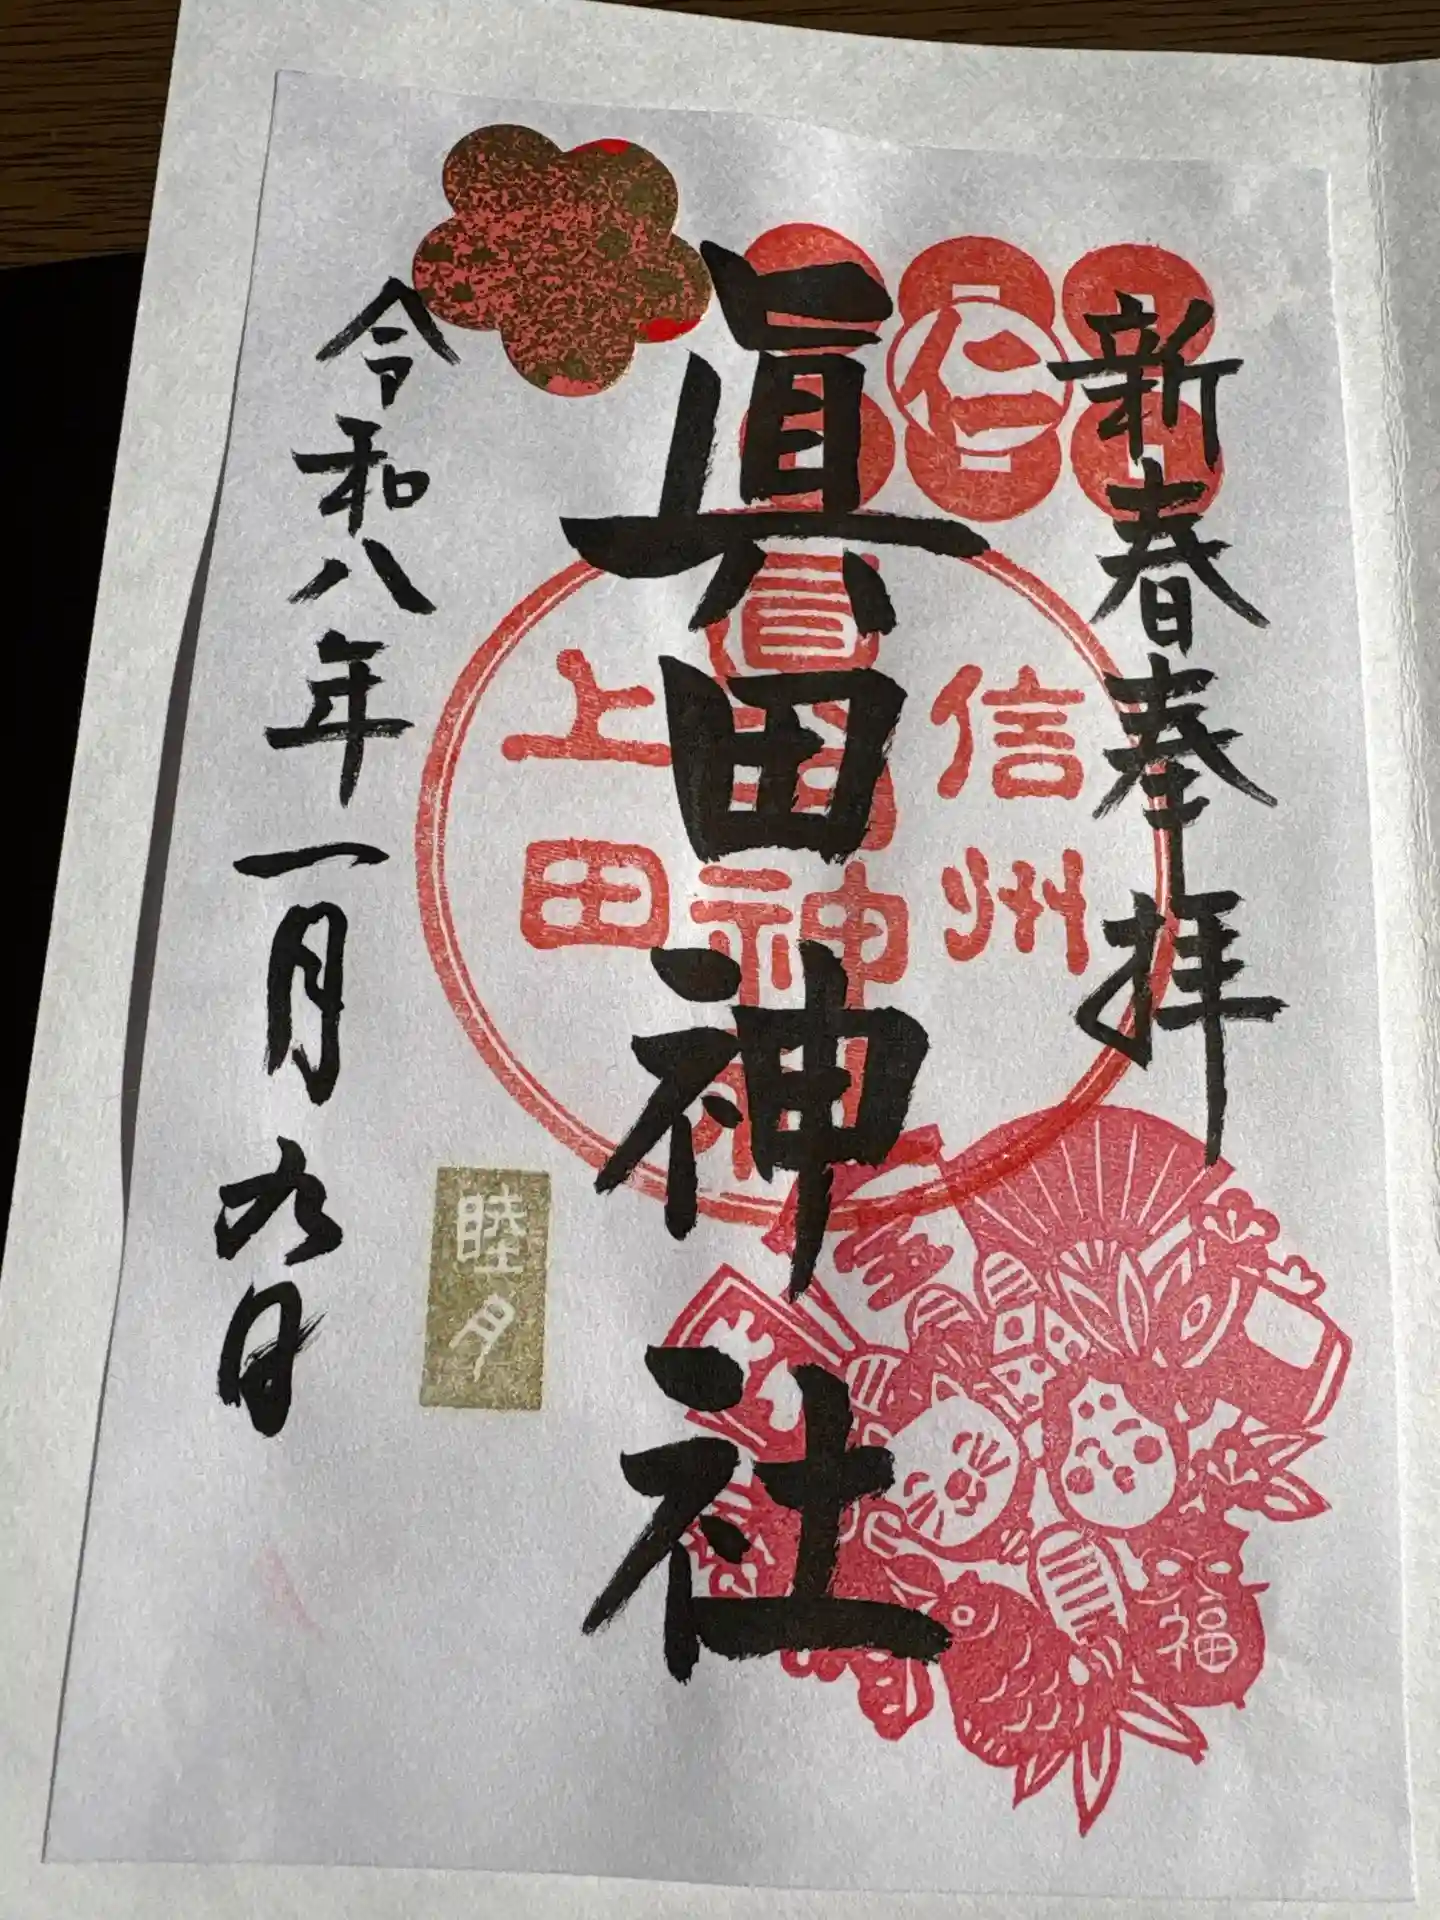 新春奉拝
仁
信州
眞田神社
上田
睦月
福
令和八年一月九日